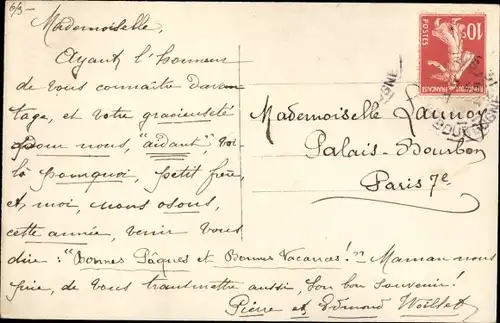 6/3-
Mademoiselle,
Ayant l'honneur
de vous connaître davan
tage, et votre gracieuseté
pour nous, "aidant", voi-
là pourquoi, petit frère,
et, moi, nous osons,
cette année, venir vous
dire: "Bonnes Pâques et Bonnes Vacances!" Maman nous
prie, de vous transmettre aussi, son bon souvenir!
Pierre et Edmond
10c
POSTES
RÉPUBLIQUE FRANÇAISE
Mademoiselle Launoy
Palais-Bourbon
Paris 7e